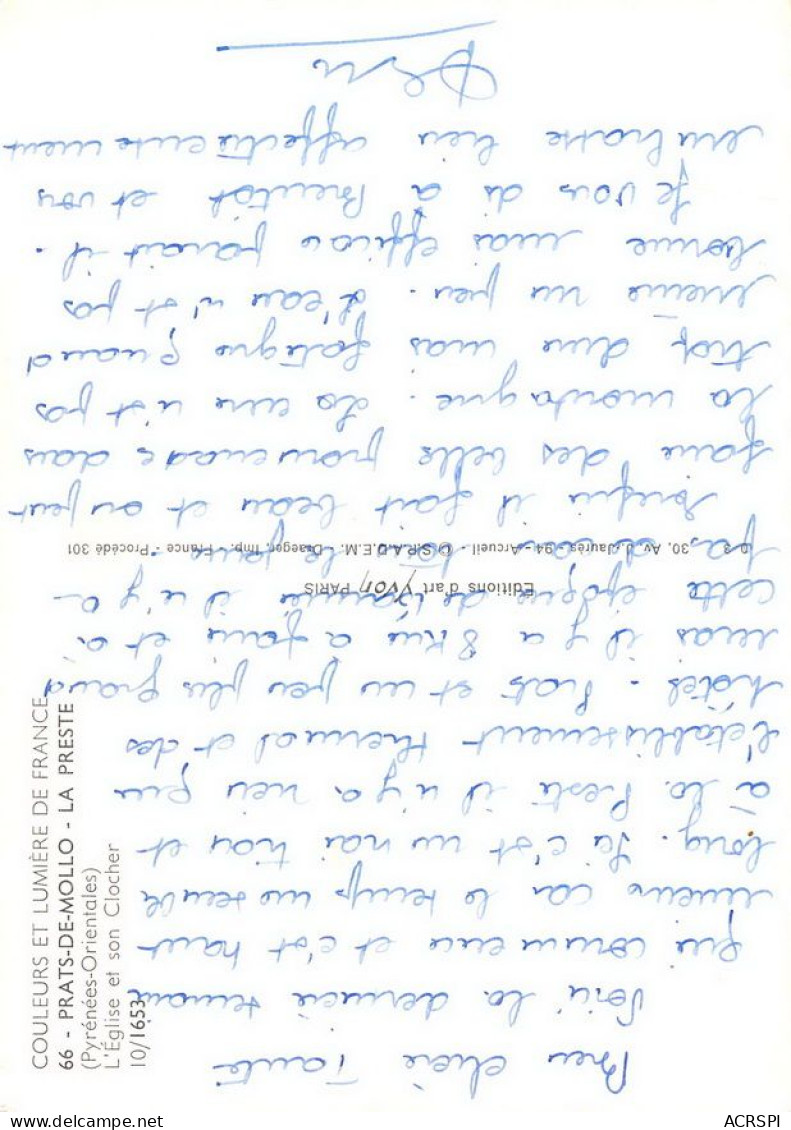 Bien chère Tante
Voici la dernière semaine
qui commence et c'est tant
mieux car le temps me semble
long. Ici c'est un vrai trou et
à la Preste il n'y a rien que
l'établissement thermal et des
hôtels. Prats est un peu plus grand
mais il y a 8 Km a faire et à
cette époque de l'année il n'y a
pas de car
puisqu'il fait beau et on peut
faire des belle promenade dans
la montagne. La cure n'est pas
trop dure mais fatigue quand
même un peu. L'eau n'est pas
bonne mais efficace parait il.
Je vous dis à Bientôt et vous
embrasse bien affectueusement
COULEURS ET LUMIÈRE DE FRANCE
66 - PRATS-DE-MOLLO - LA PRESTE
(Pyrénées-Orientales)
L'Église et son Clocher
10/1653
Editions d'art Yvon PARIS
30, Av. J. Jaurès - 94 - Arcueil - © S.P.A.D.E.M. - Draeger, Imp. - France - Procédé 301
ACRSPI